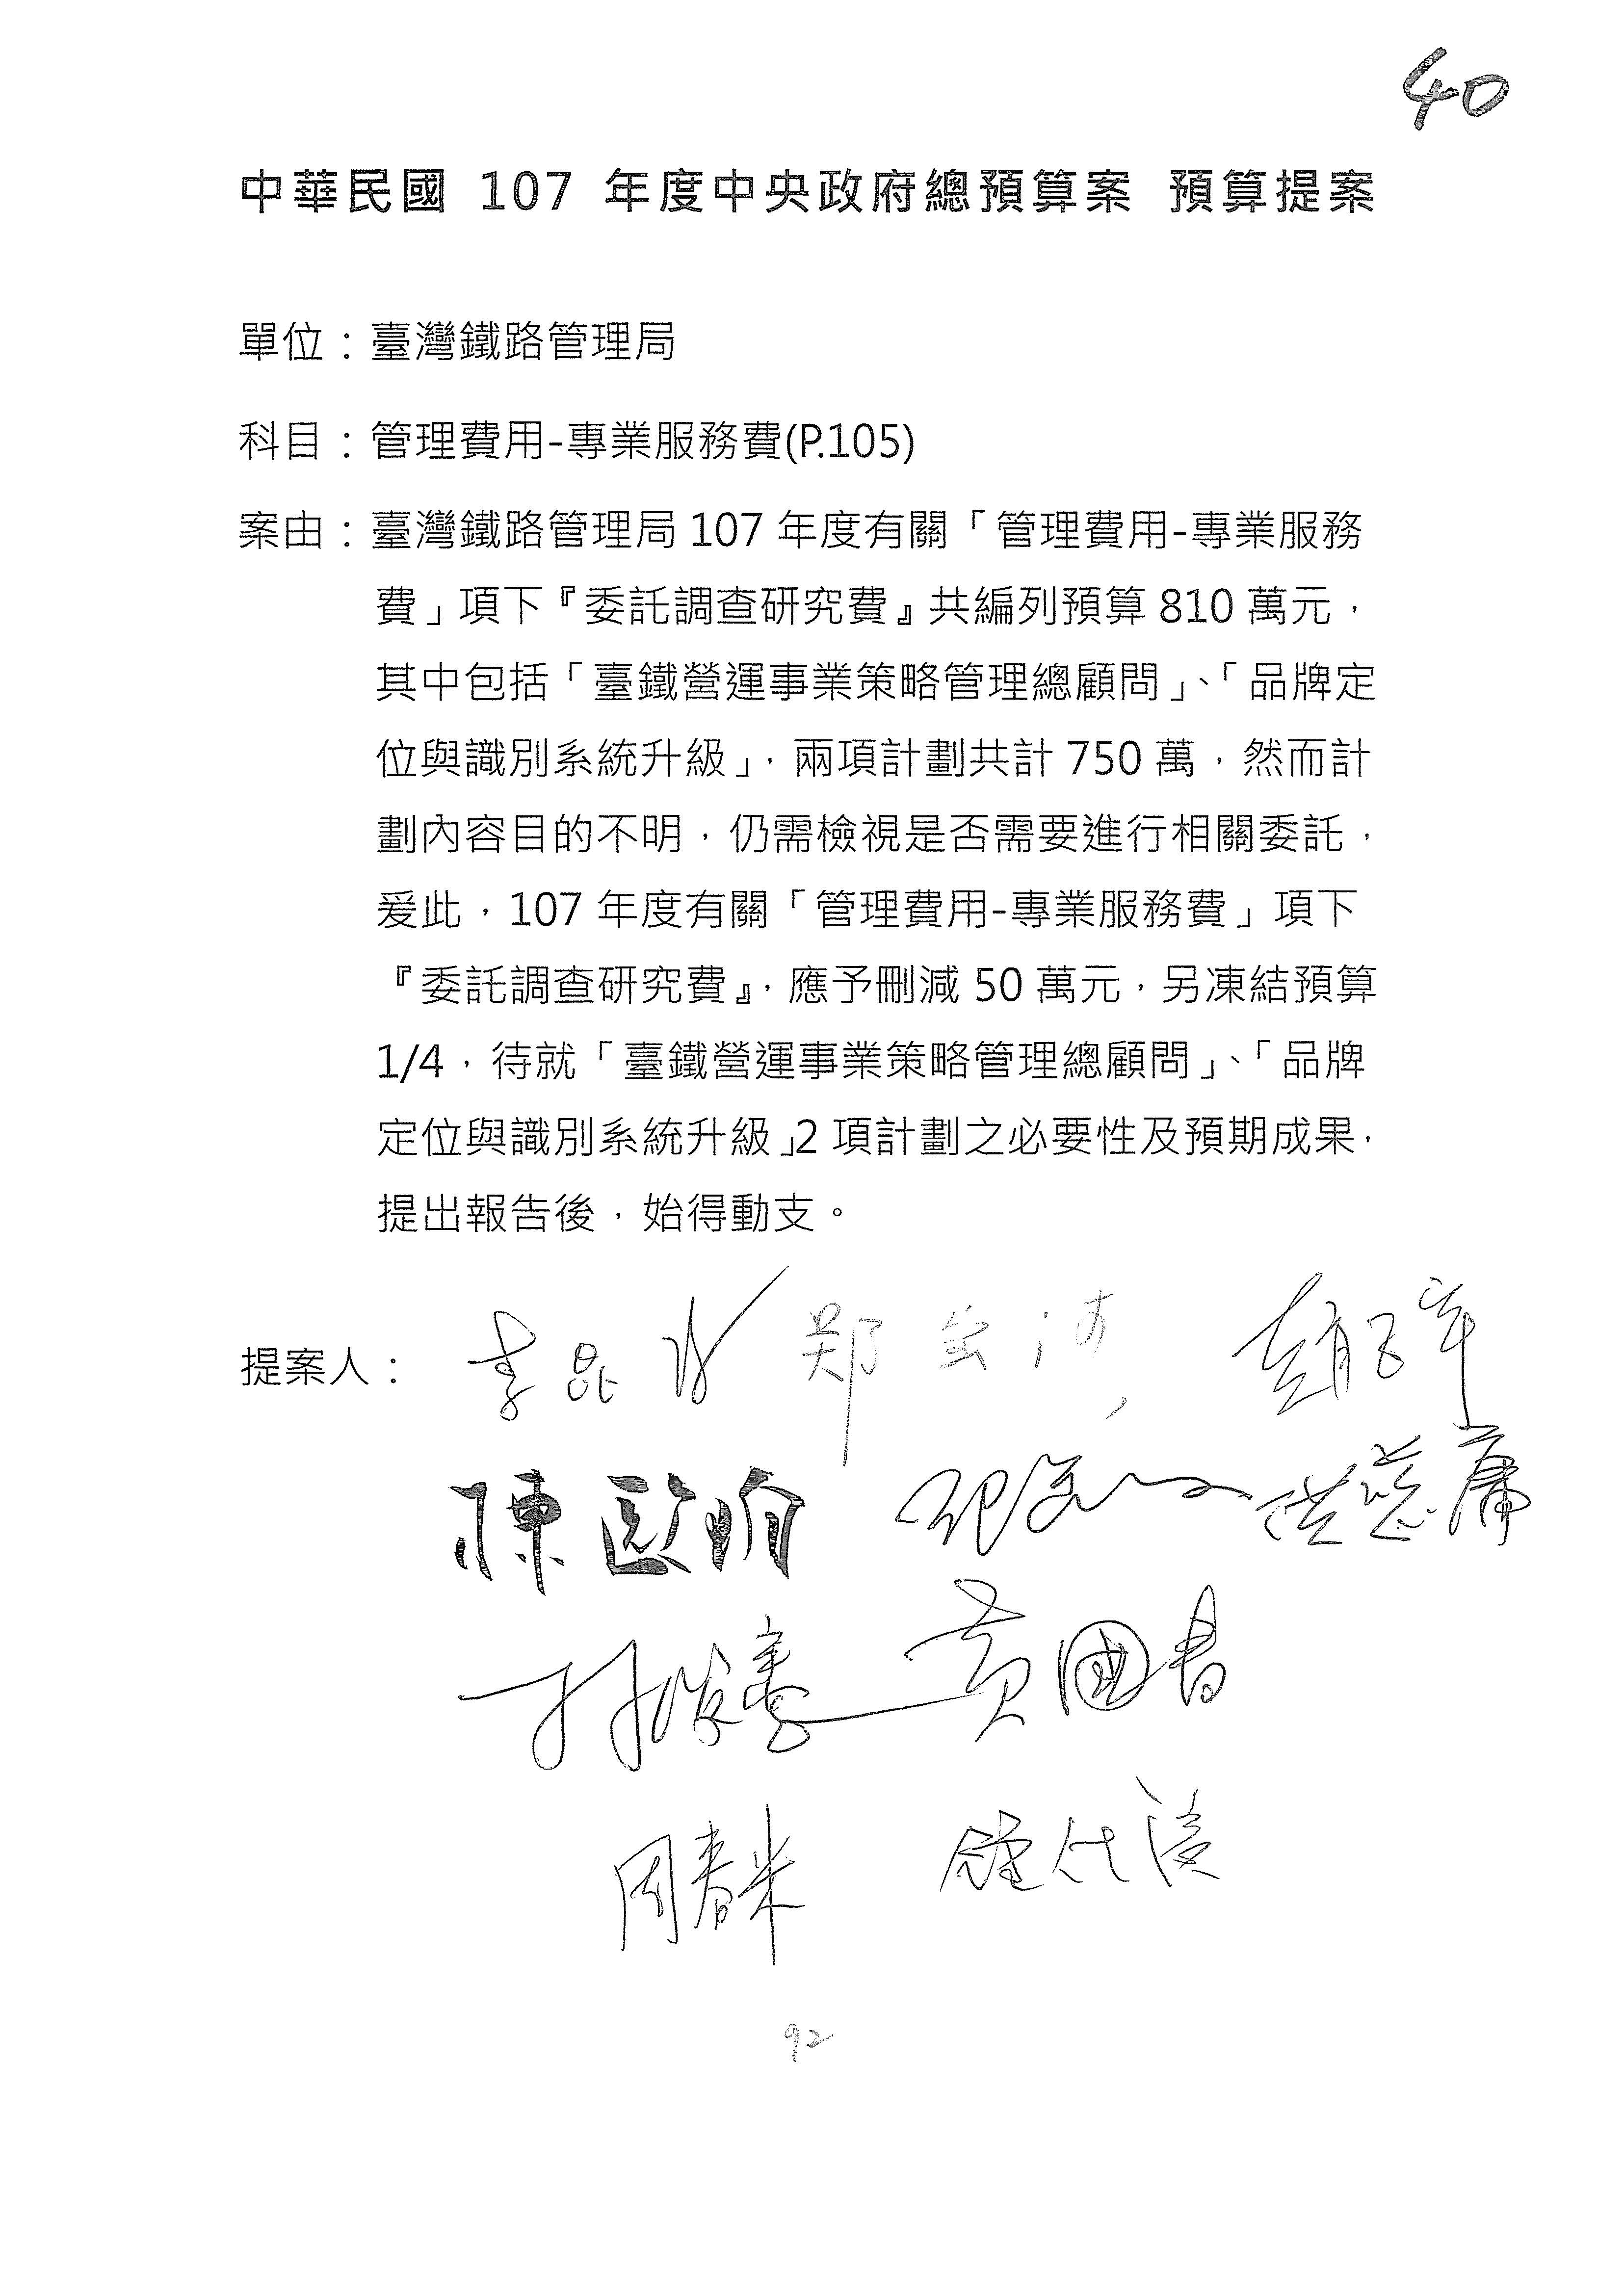 40
中華民國 107 年度中央政府總預算案 預算提案
單位：臺灣鐵路管理局
科目：管理費用-專業服務費(P.105)
案由：臺灣鐵路管理局 107 年度有關「管理費用-專業服務
費」項下『委託調查研究費』共編列預算 810 萬元，
其中包括「臺鐵營運事業策略管理總顧問」、「品牌定
位與識別系統升級」，兩項計劃共計 750 萬，然而計
劃內容目的不明，仍需檢視是否需要進行相關委託，
爰此，107 年度有關「管理費用-專業服務費」項下
『委託調查研究費』，應予刪減 50 萬元，另凍結預算
1/4，待就「臺鐵營運事業策略管理總顧問」、「品牌
定位與識別系統升級」2 項計劃之必要性及預期成果，
提出報告後，始得動支。
提案人： 李昆澤 鄭寶清 趙正宇
陳歐珀 洪慈庸
林俊憲 黃國書
周春米 鍾佳濱
92